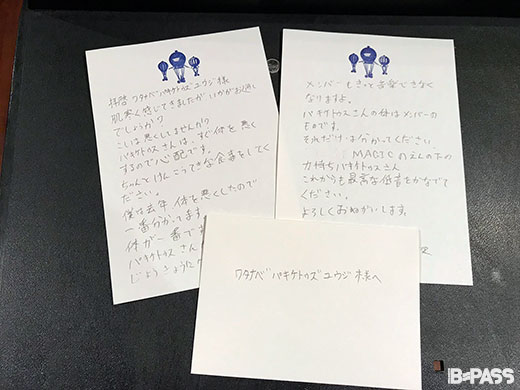 拝啓 ワタナベ"バキケトゥズ"ユウジ様
肌寒く感じてきましたが いかがお過し
でしょうか?
こしは悪くしてませんか?
バキケトゥズさんは、すぐ体を悪く
するので心配です。
ちゃんとけんこうてきな食事をしてく
ださい。
僕は去年 体を悪くしたので
一番分かってます。
体が一番で
バキケトゥズさん
じょうきょうに
メンバーもきっと音楽できなく
なりますよ。
バキケトゥズさんの体はメンバーの
ものです。
それだけは分かってください。
MAGICのえんの下の
力持ちバキケトゥズさん
これからも最高な低音をかなでて
ください。
よろしくおねがいします。
ワタナベ"バキケトゥズ"ユウジ様へ
B-PASS